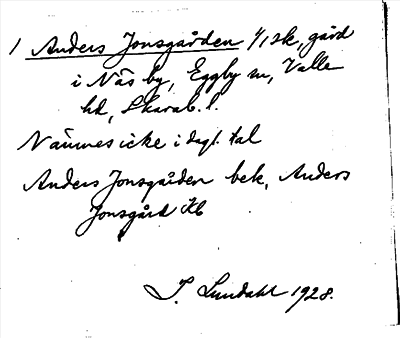 1 Anders Jonsgården 1/1 sk, gård
i Näs by, Eggby sn, Valle
hd, Skarab. l.
Nämnes icke i dagl. tal
Anders Jonsgården bek, Anders
Jonsgård Kb
I. Lundahl 1928.